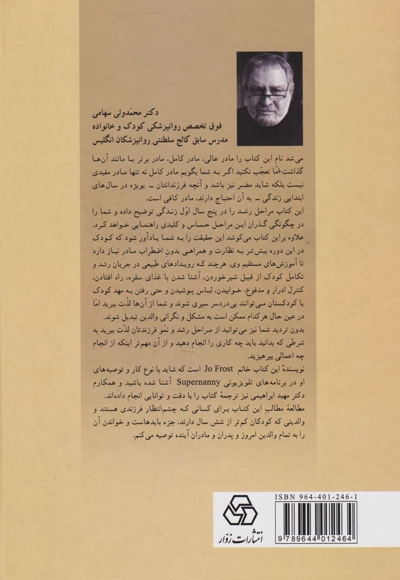 دکتر محمّدولی سهامی
فوق تخصص روانپزشکی کودک و خانواده
مدرس سابق کالج سلطنتی روانپزشکان انگلیس
می‌شد نام این کتاب را مادر عالی، مادر کامل، مادر برتر یا مانند آن‌ها
گذاشت امّا تعجب نکنید اگر به شما بگویم مادر کامل نه تنها مادر مفیدی
نیست بلکه شاید مضر نیز باشد و آنچه فرزندانتان ــ بویژه در سال‌های
ابتدایی زندگی ــ به آن احتیاج دارند، مادر کافی است.
این کتاب مراحل رشد را در پنج سال اوّل زندگی توضیح داده و شما را
در چگونگی گذران این مراحل حساس و کلیدی راهنمایی خواهد کرد.
علاوه براین کتاب می‌کوشد این حقیقت را به شما یادآور شود که کودک
در این دوره بیش‌تر به نظارت و همراهی بدون اضطراب مادر نیاز دارد
تا آموزش‌های مستقیم وی. هرچند که رویدادهای طبیعی در جریان رشد و
تکامل کودک از قبیل شیرخوردن، آشنا شدن با غذای سفره، راه افتادن،
کنترل ادرار و مدفوع، خوابیدن، لباس پوشیدن و حتی رفتن به مهد کودک
یا کودکستان می‌توانند بی‌دردسر سپری شوند و شما از آن‌ها لذّت ببرید امّا
در عین حال هرکدام ممکن است به مشکل و نگرانی والدین تبدیل شوند.
بدون تردید شما نیز می‌توانید از مراحل رشد و نمو فرزندتان لذّت ببرید به
شرطی که بدانید باید چه کاری را انجام دهید و از آن مهم‌تر اینکه از انجام
چه اعمالی بپرهیزید.
نویسندهٔ این کتاب خانم Jo Frost است که شاید با نوع کار و توصیه‌های
او در برنامه‌های تلویزیونی Supernanny آشنا شده باشید و همکارم
دکتر مهبد ابراهیمی نیز ترجمهٔ کتاب را با دقت و توانایی انجام داده‌اند.
مطالعهٔ مطالب این کتاب برای کسانی که چشم‌انتظار فرزندی هستند و
والدینی که کودکان کم‌تر از شش سال دارند، جزء بایدهاست و خواندن آن
را به تمام والدین امروز و پدران و مادران آینده توصیه می‌کنم.
ISBN 964-401-246-1
9 789644 012464
انتشارات زوّار